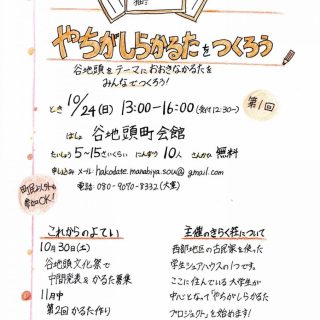 やちがしらかるたをつくろう
谷地頭をテーマにおおきなかるたを
みんなでつくろう!
とき 10/24(日) 13:00-16:00(受付12:30~)
第1回
ばしょ 谷地頭町会館
たいしょう 5~15さいくらい にんずう 10人 さんかひ 無料
申し込み メール: hakodate.manabiya.sou@gmail.com
電話: 080-9070-8332(大室)
町民以外も
参加OK!
これからのよてい
10月30日(土)
谷地頭文化祭で
中間発表&かるた募集
11月中
第2回かるた作り
主催のきらく荘について
西部地区の古民家を使った
学生シェアハウスの1つです。
ここに住んでいる大学生が
中心となって「やちがしらかるた
プロジェクト」を始めます!